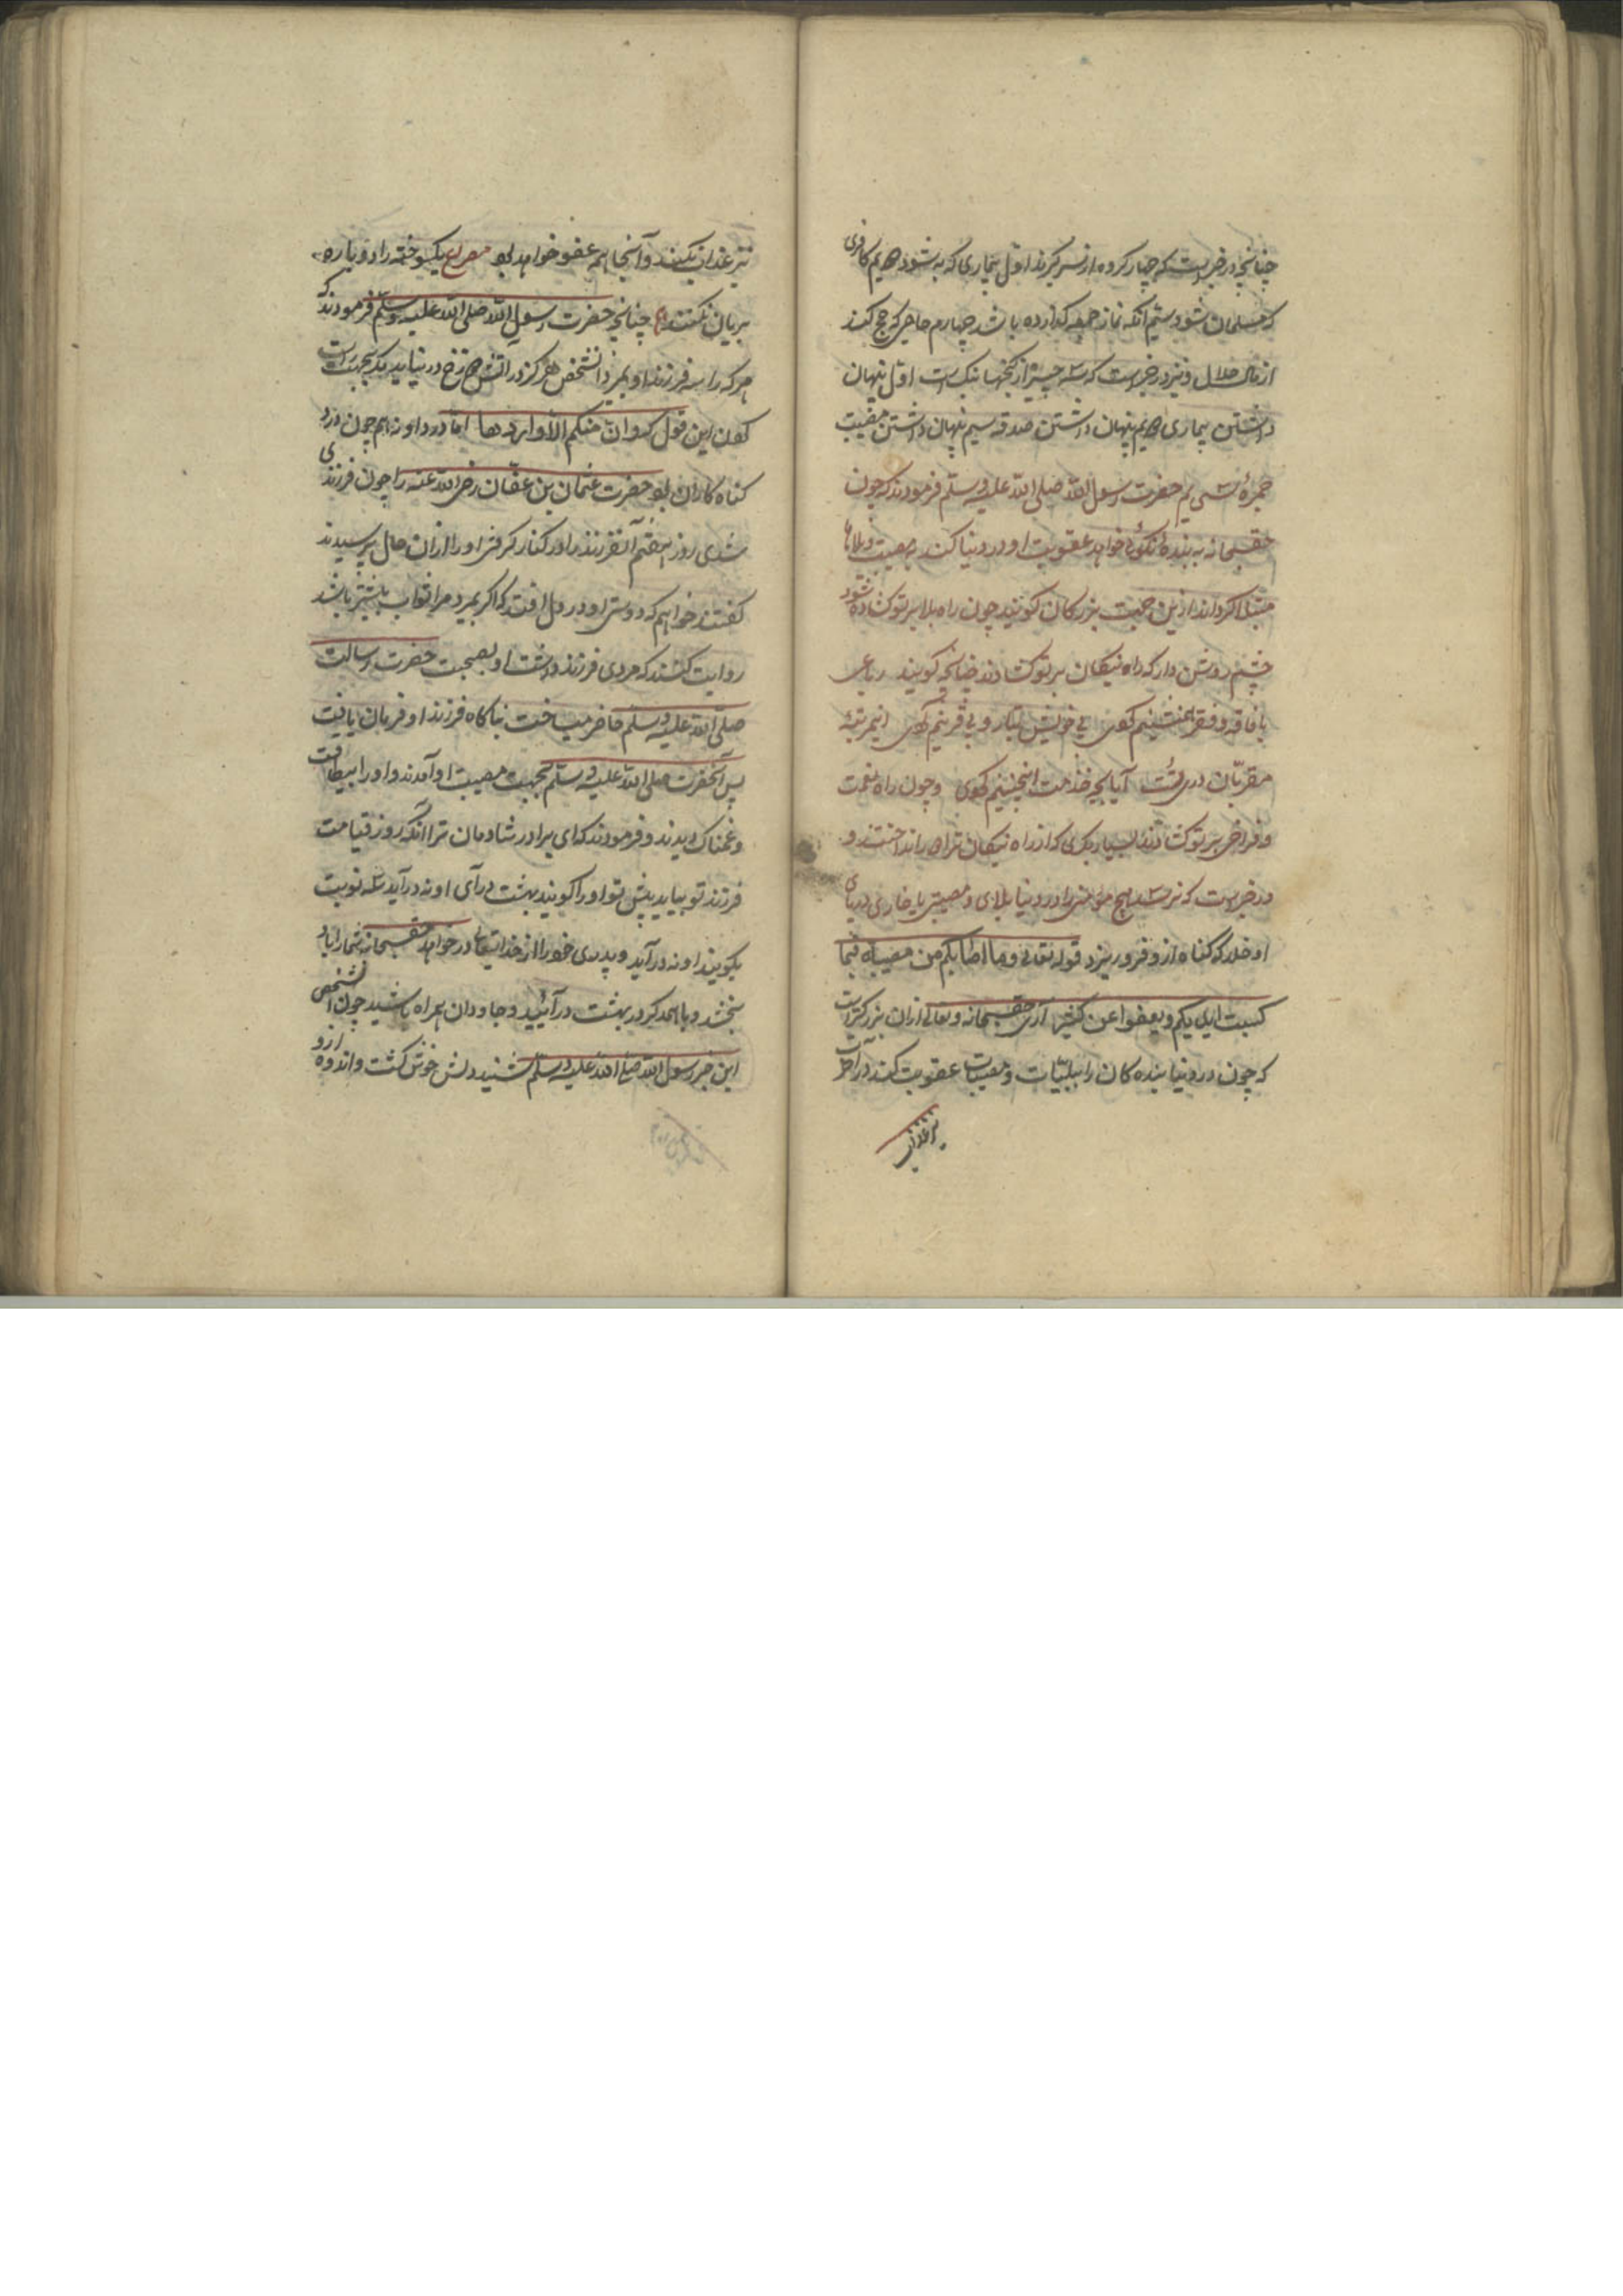 چنانچه در خبرست که چهار کرده از سر گیرند اول بیماری که به شود دویم کافری
که مسلمان شود سیم آنکه نماز جمعه گذارده باشد چهارم حاجی که حج کند
از مال حلال و نیز در خبرست که سه چیز از گنجها نیک است اول پنهان
داشتن بیماری دویم پنهان داشتن صدقه سیم پنهان داشتن مصیبت
حضرت رسول الله صلی الله علیه و سلم فرمودند که چون
حق سبحانه به بنده نیکوئی خواهد عقوبت او در دنیا کند بمصیبت و بلاها
مبتلا گرداند ازین جهت بزرگان گویند چون راه بلا بر تو گشاده شود
چشم روشن دار که راه نیکان بر تو گشادند چنانچه گویند رباعی
با فاقه و فقر همنشینم کردی بی خویش و تبار و بی قرینم کردی این مرتبهٔ
مقربان در تست آیا بچه خدمت اینچنینم کردی و چون راه نعمت
و فراخی بر تو گشادند بسیار بگری که از راه نیکان ترا دور انداختند و
در خبرست که نرسد هیچ مؤمنی را در دنیا بلای و مصیبتی یا خاری در پای
او خلد که گناه ازو فرو ریزد قوله تعالی و ما اصابکم من مصیبة فبما
کسبت ایدیکم و یعفوا عن کثیر آری حق سبحانه و تعالی ازان بزرگتر است
که چون در دنیا بنده کان را ببلیّات و مصیبات عقوبت کند در آخرت
نیز عذاب
نیز عذاب کند و آنجا همه عفو خواهد بود مصراع یکسوخته را دوباره
بریان نکنند چنانچه حضرت رسول الله صلی الله علیه وسلم فرمودند که
هر که را سه فرزند او بمیرد آنشخص هرگز در آتش دوزخ در نیاید مگر بجهت راست
کردن این قول که و ان منکم الا واردها اما در داو نه هم چون درد
گناه کاران بود حضرت عثمان بن عفّان رضی الله عنه را چون فرزندی
شدی روز هفتم آنفرزند را در کنار گرفتی او را ازان حال پرسیدند
گفتند خواهم که دوستی او در دل افتد که اگر بمیرد مرا ثواب بیشتر باشد
روایت کنند که مردی فرزند داشت او بصحبت حضرت رسالت
صلی الله علیه و سلم حاضر میساخت ناگاه فرزند او فرمان یافت
پس آنحضرت صلی الله علیه و سلم بجهت مصیبت او آمدند و او را بیطاقت
و غمناک دیدند و فرمودند که ای برادر شادمان ترا آنکه روز قیامت
فرزند تو بیاید پیش تو او را گویند بهشت در آی او نه در آید سه نوبت
بگویند او نه در آید و پدر خود را از خدایتعالی در خواهد حق سبحانه شما را باو
بخشد و با همدگر در بهشت در آئید و جاودان همراه باشید چون آنشخص
این خبر رسول الله صلی الله علیه و سلم شنید دلش خوش گشت و اندوه ازو